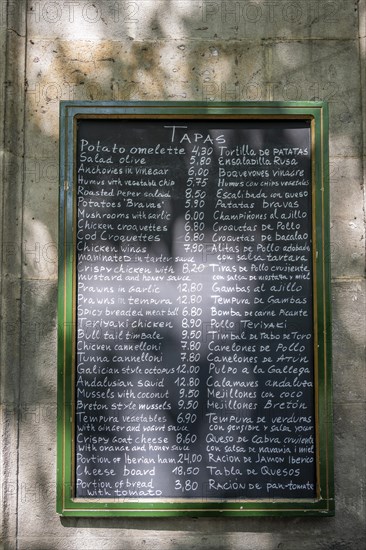 TAPAS
Potato omelette 4,30 Tortilla de patata
Salad olive 5.80 Ensaladilla Rusa
Anchovies in vinegar 6,00 Boquerones vinagre
Humus with vegetable chip 5.75 Humus con chips vegetales
Roasted peper salad 8.50 Escalibada con queso
Potatoes "Bravas" 5.90 Patatas bravas
Mushrooms with garlic 6.00 Champiñones al ajillo
Chicken croquettes 6.00 Croquetas de Pollo
Cod Croquettes 6.00 Croquetas de bacalao
Chicken wings 7.90 Alitas de Pollo adobado
marinated in tarter sauce con salsa tartara
Crispy chicken with 8.20 Tiras de Pollo crujiente
mustard and honey sauce con salsa de mostaza i miel
Prawns in garlic 12.80 Gambas al ajillo
Prawns in tempura 12.80 Tempura de Gambas
Spicy breaded meat ball 6.80 Bomba de carne Picante
Teriyaki chicken 8.90 Pollo Teriyaki
Bull tail timbale 9.50 Timbal de Tabo de Toro
Chicken cannelloni 7.80 Canelones de Pollo
Tunna cannelloni 7.80 Canelones de Atún
Galician style octopus 12.00 Pulpo a la Gallega
Andalusian squid 12.80 Calamares andaluza
Mussels with coconut 9.50 Mejillones con coco
Breton style mussels 9.50 Mejillones Bretón
Tempura vegetables 6.90 Tempura de verduras
with ginger and yogurt sauce con gengibre y salsa yogur
Crispy goat cheese 8.60 Queso de Cabra crujiente
with orange and honey con salsa de naranja i miel
Portion of Iberian ham 24.00 Racion de Jamon Iberico
Cheese board 18,50 Tabla de Quesos
Portion of bread 3,80 Ración de pan-tomate
with tomato